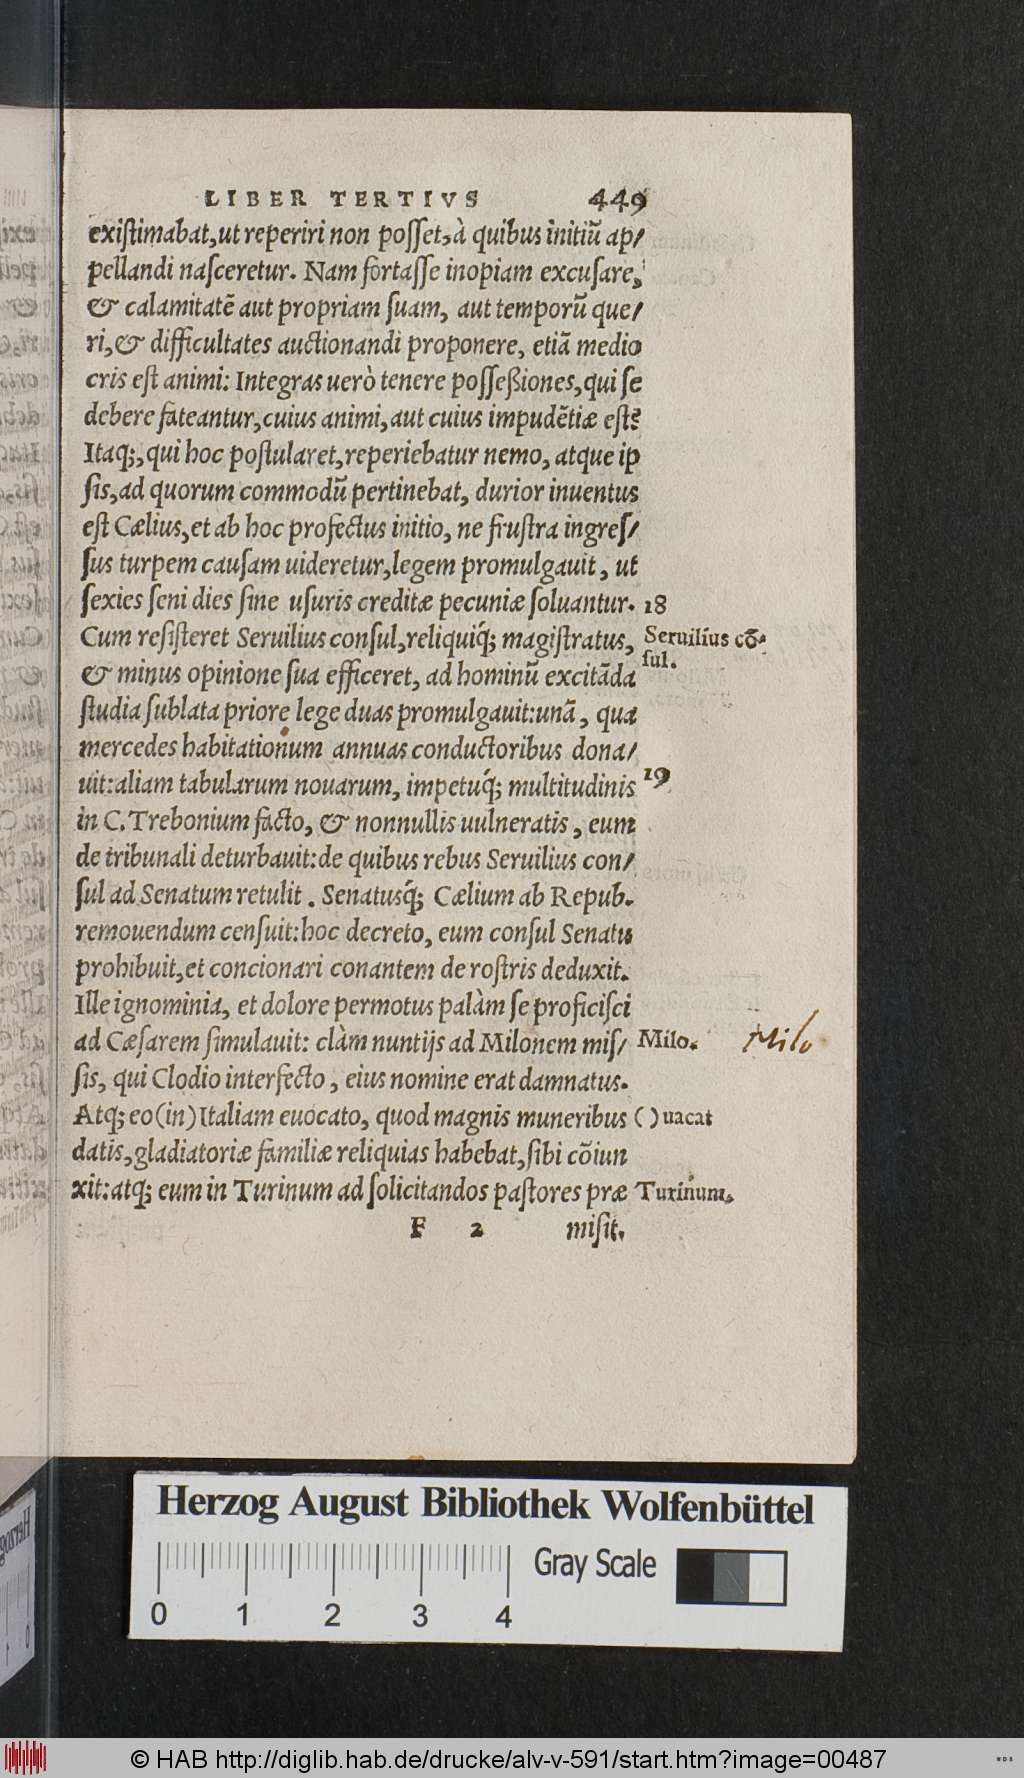 LIBER TERTIVS 449
existimabat, ut reperiri non posset, à quibus initiũ ap/
pellandi nasceretur. Nam fortasse inopiam excusare,
& calamitatẽ aut propriam suam, aut temporũ que/
ri, & difficultates auctionandi proponere, etiã medio
cris est animi: Integras uerò tenere posseßiones, qui se
debere fateantur, cuius animi, aut cuius impudẽtiæ est?
Itaq;, qui hoc postularet, reperiebatur nemo, atque ip
sis, ad quorum commodũ pertinebat, durior inuentus
est Cælius, et ab hoc profectus initio, ne frustra ingres/
sus turpem causam uideretur, legem promulgauit, ut
sexies seni dies sine usuris creditæ pecuniæ soluantur. 18
Cum resisteret Seruilius consul, reliquiq́; magistratus, Seruilius cõ-
sul.
& minus opinione sua efficeret, ad hominũ excitãda
studia sublata priore lege duas promulgauit: unã, qua
mercedes habitationum annuas conductoribus dona/
uit: aliam tabularum nouarum, impetuq́; multitudinis 19
in C. Trebonium facto, & nonnullis uulneratis, eum
de tribunali deturbauit: de quibus rebus Seruilius con/
sul ad Senatum retulit. Senatusq́; Cælium ab Repub.
remouendum censuit: hoc decreto, eum consul Senatu
prohibuit, et concionari conantem de rostris deduxit.
Ille ignominia, et dolore permotus palàm se proficisci
ad Cæsarem simulauit: clàm nuntijs ad Milonem mis/ Milo. Milo
sis, qui Clodio interfecto, eius nomine erat damnatus.
Atq; eo (in) Italiam euocato, quod magnis muneribus ( ) uacat
datis, gladiatoriæ familiæ reliquias habebat, sibi cõiun
xit: atq; eum in Turinum ad solicitandos pastores præ Turinum.
F 2 misit.
Herzog August Bibliothek Wolfenbüttel
Gray Scale
0 1 2 3 4
© HAB http://diglib.hab.de/drucke/alv-v-591/start.htm?image=00487